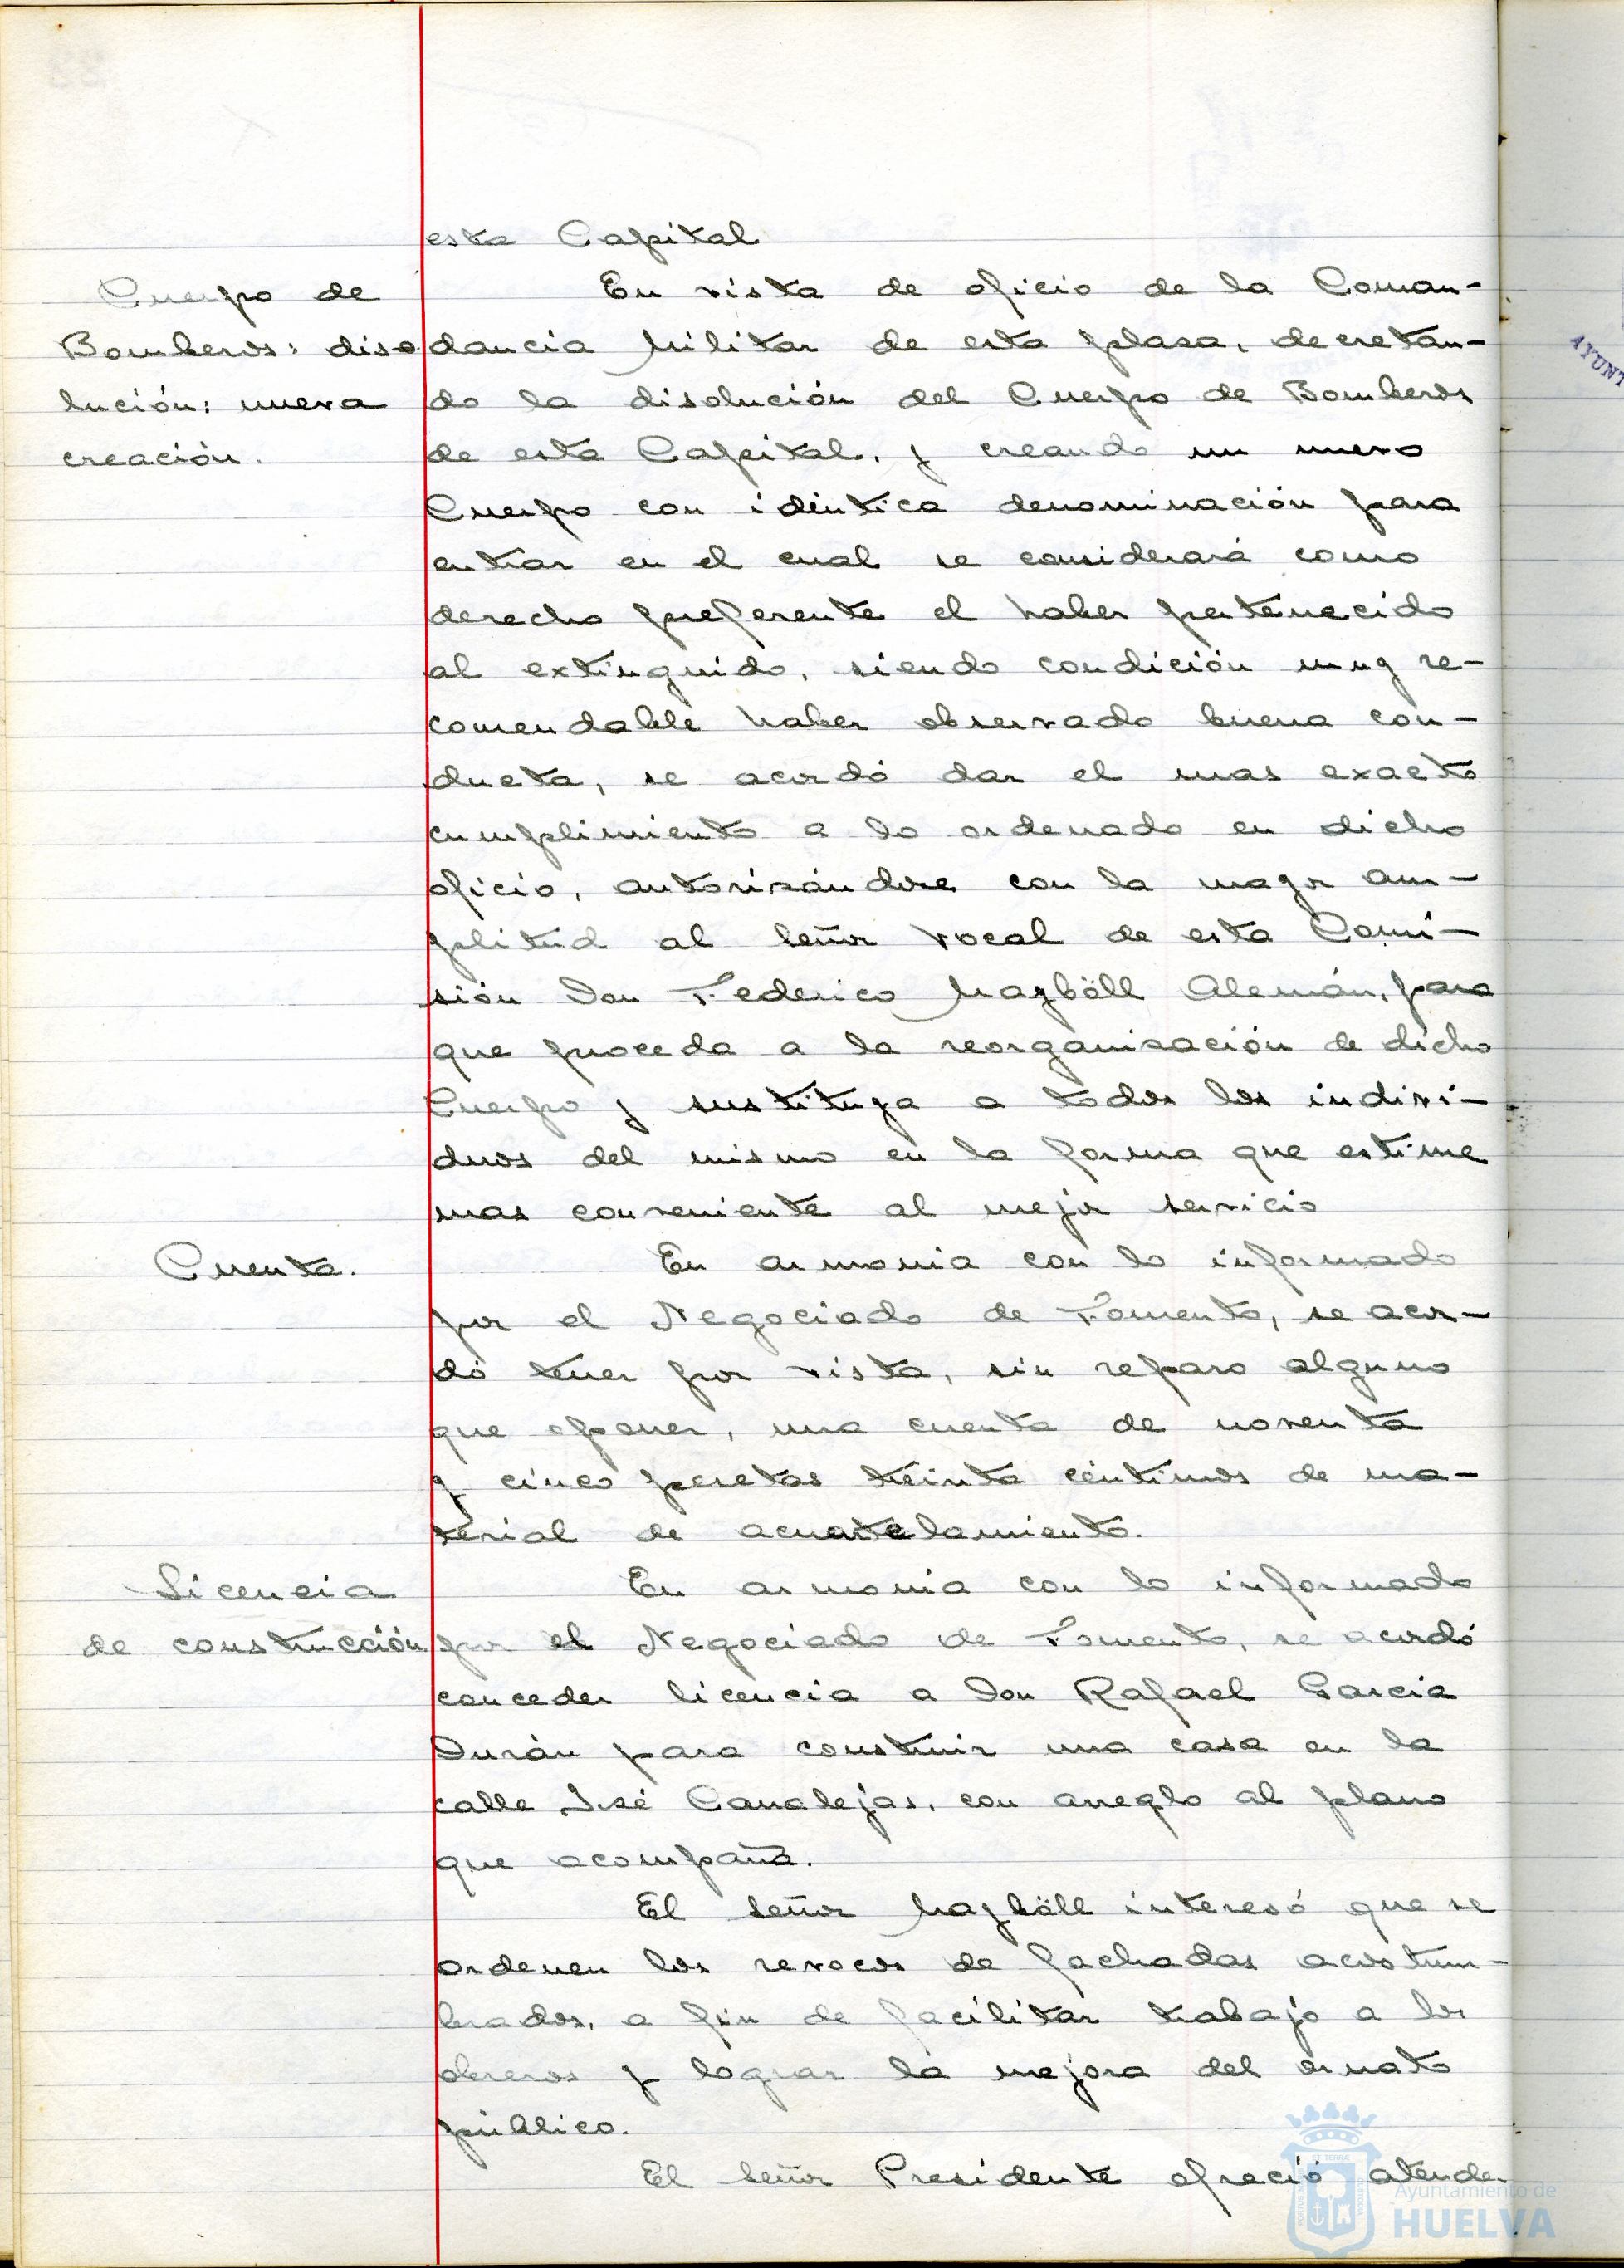 esta Capital
Cuerpo de
Bomberos: diso
lución: nueva
creación.
En vista de oficio de la Coman-
dancia Militar de esta plaza, decretan-
do la disolución del Cuerpo de Bomberos
de esta Capital, y creando un nuevo
Cuerpo con idéntica denominación para
entrar en el cual se considerará como
derecho preferente el haber pertenecido
al extinguido, siendo condición muy re-
comendable haber observado buena con-
ducta, se acordó dar el mas exacto
cumplimiento a lo ordenado en dicho
oficio, autorizándose con la mayor am-
plitud al Señor Vocal de esta Comi-
sión Don Federico Mayböll Alemán, para
que proceda a la reorganización de dicho
Cuerpo y sustituya a todos los indivi-
duos del mismo en la forma que estime
mas conveniente al mejor servicio
Cuenta.
En armonia con lo informado
por el Negociado de Fomento, se acor-
dó tener por vista, sin reparo alguno
que oponer, una cuenta de noventa
y cinco pesetas treinta céntimos de ma-
terial de acuartelamiento.
Licencia
de construcción
En armonia con lo informado
por el Negociado de Fomento, se acordó
conceder licencia a Don Rafael Garcia
Durán para construir una casa en la
calle José Canalejas, con arreglo al plano
que acompaña.
El Señor Mayböll interesó que se
ordenen los revocos de fachadas acostum-
brados, a fin de facilitar trabajo a los
obreros y lograr la mejora del ornato
público.
El Señor Presidente ofreció atender
AYUNT
Ayuntamiento de
HUELVA